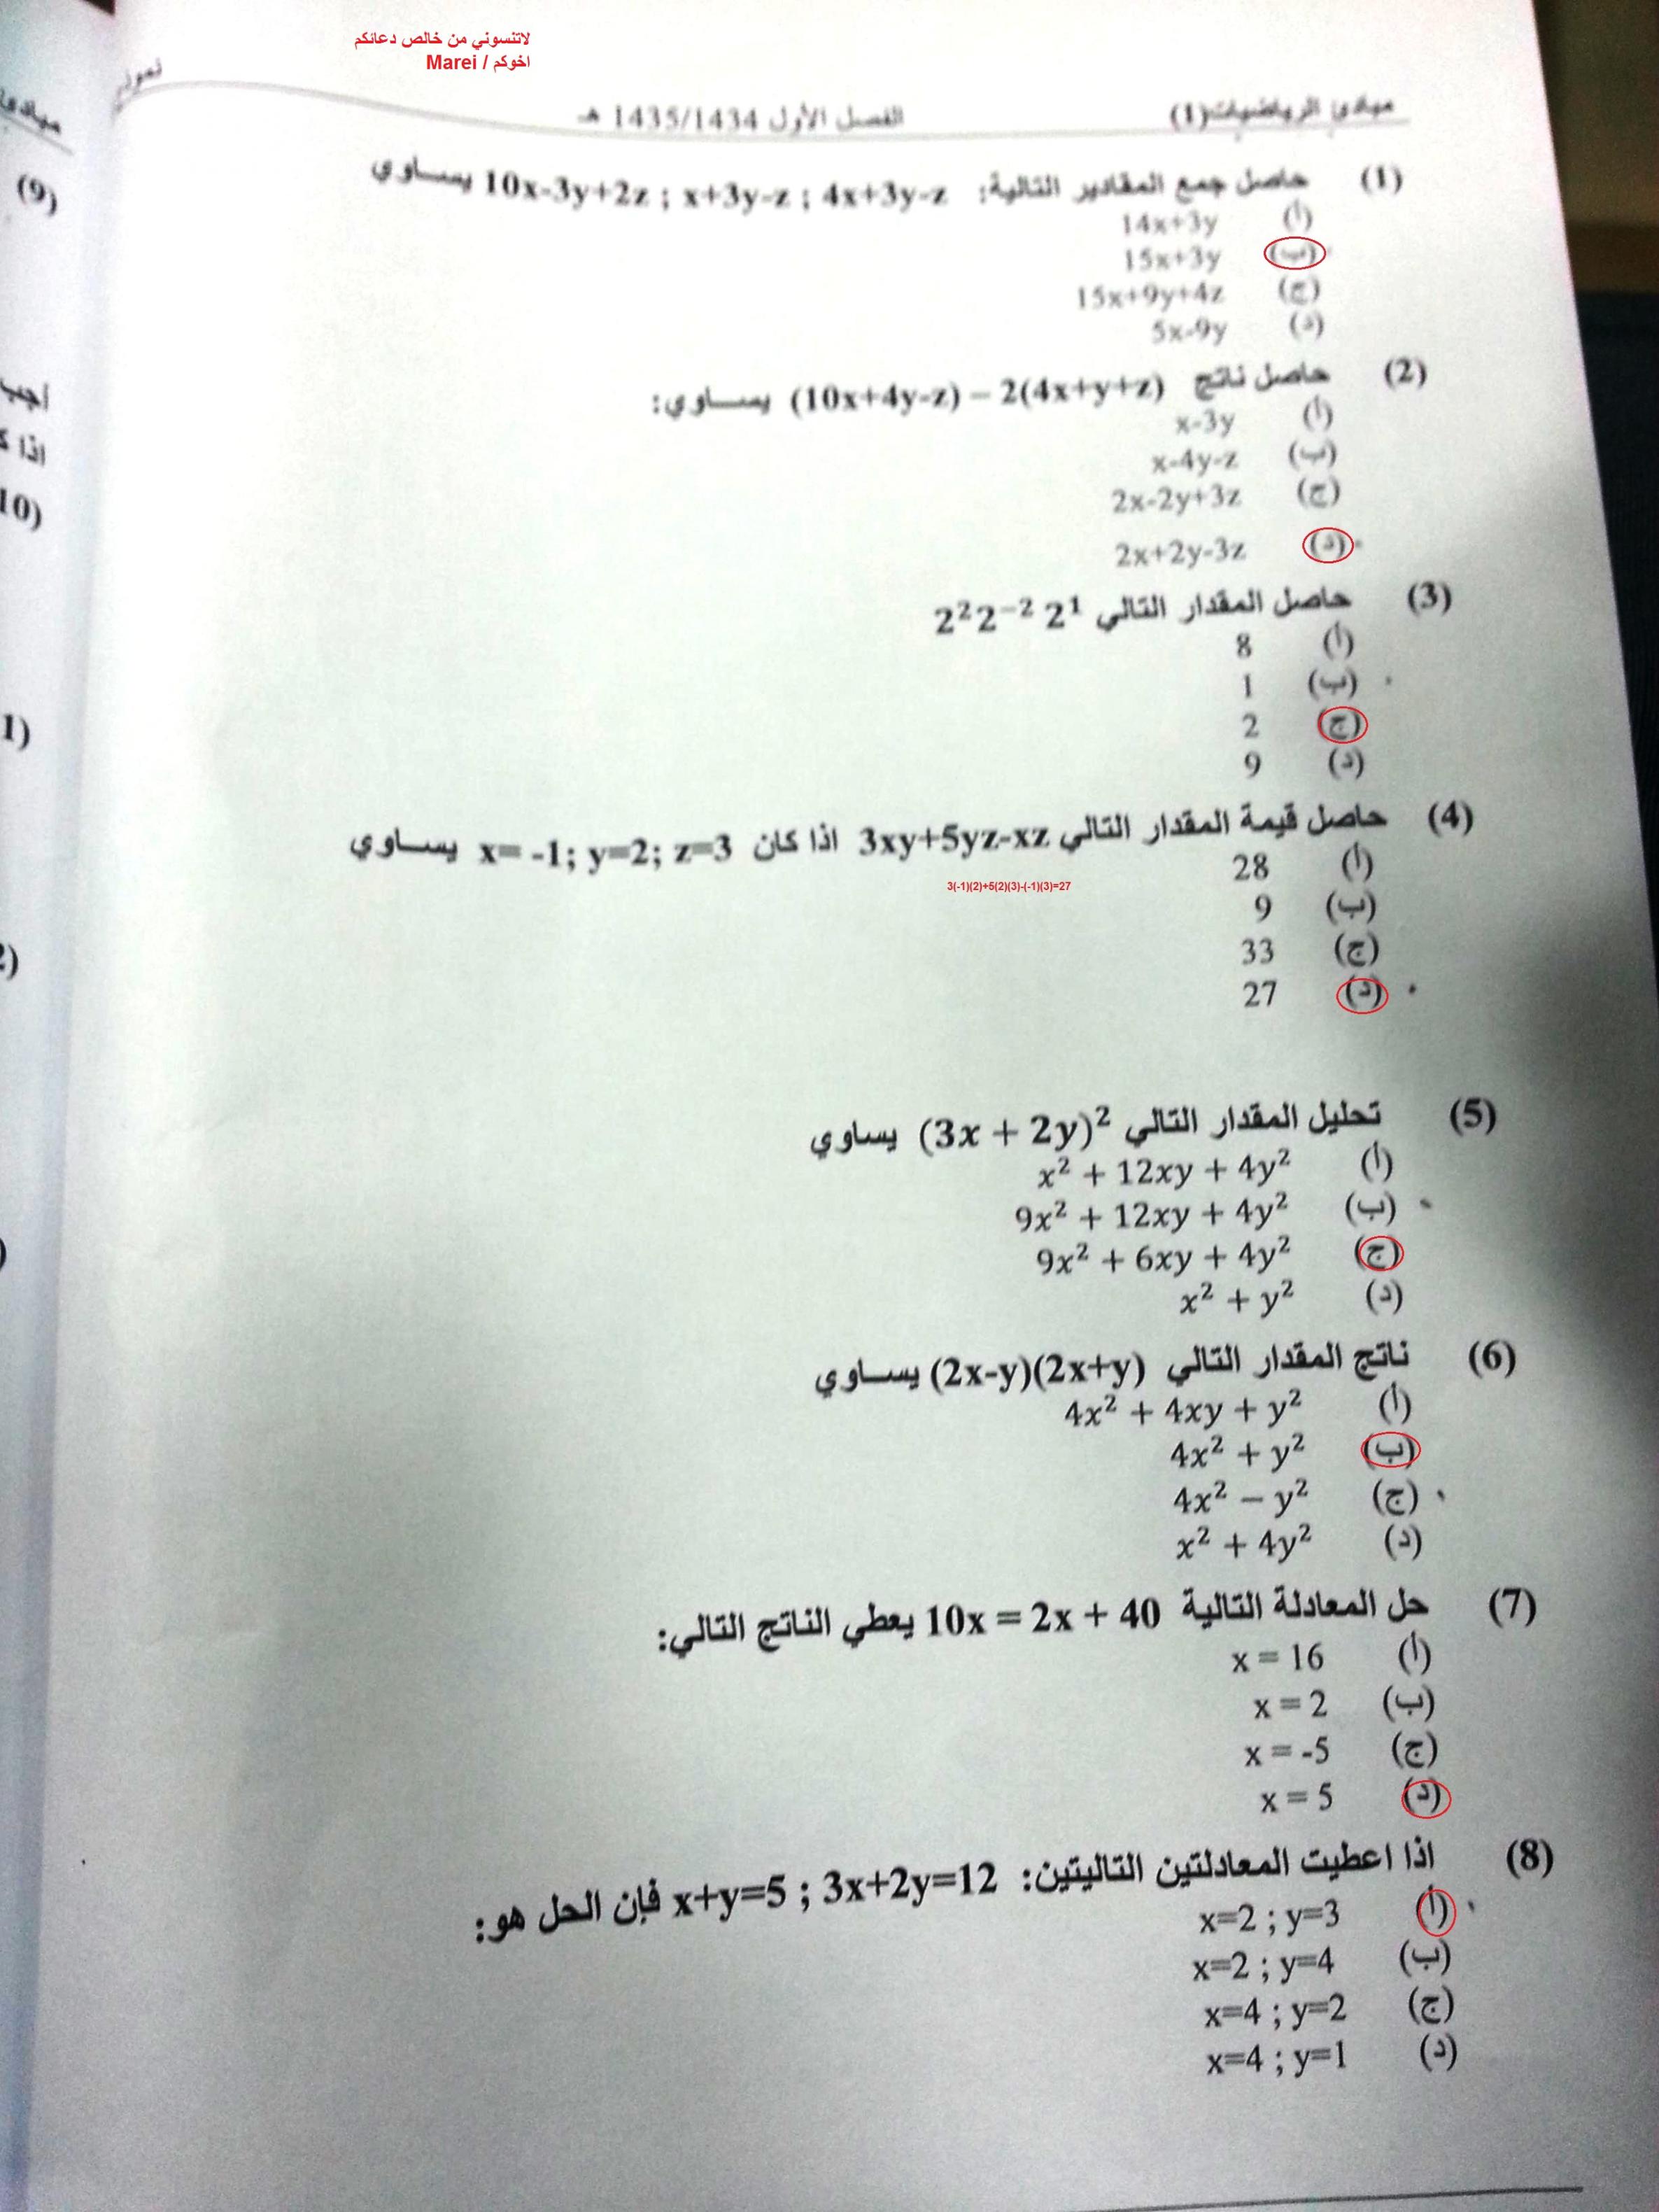 لاتنسوني من خالص دعائكم
اخوكم / Marei
مبادئ الرياضيات(1) الفصل الأول 1435/1434 هـ نموذ
(1) حاصل جمع المقادير التالية: 10x-3y+2z ; x+3y-z ; 4x+3y-z يساوي
(أ) 14x+3y
(ب) 15x+3y
(ج) 15x+9y+4z
(د) 5x-9y
(2) حاصل ناتج (10x+4y-z) – 2(4x+y+z) يساوي:
(أ) x-3y
(ب) x-4y-z
(ج) 2x-2y+3z
(د) 2x+2y-3z
(3) حاصل المقدار التالي 2² 2⁻² 2¹
(أ) 8
(ب) 1
(ج) 2
(د) 9
(4) حاصل قيمة المقدار التالي 3xy+5yz-xz اذا كان x= -1; y=2; z=3 يساوي
3(-1)(2)+5(2)(3)-(-1)(3)=27
(أ) 28
(ب) 9
(ج) 33
(د) 27
(5) تحليل المقدار التالي (3x + 2y)² يساوي
(أ) x² + 12xy + 4y²
(ب) 9x² + 12xy + 4y²
(ج) 9x² + 6xy + 4y²
(د) x² + y²
(6) ناتج المقدار التالي (2x-y)(2x+y) يساوي
(أ) 4x² + 4xy + y²
(ب) 4x² + y²
(ج) 4x² − y²
(د) x² + 4y²
(7) حل المعادلة التالية 10x = 2x + 40 يعطي الناتج التالي:
(أ) x = 16
(ب) x = 2
(ج) x = -5
(د) x = 5
(8) اذا اعطيت المعادلتين التاليتين: x+y=5 ; 3x+2y=12 فإن الحل هو:
(أ) x=2 ; y=3
(ب) x=2 ; y=4
(ج) x=4 ; y=2
(د) x=4 ; y=1
(9)
أجب
اذا ك
10)
1)
2)